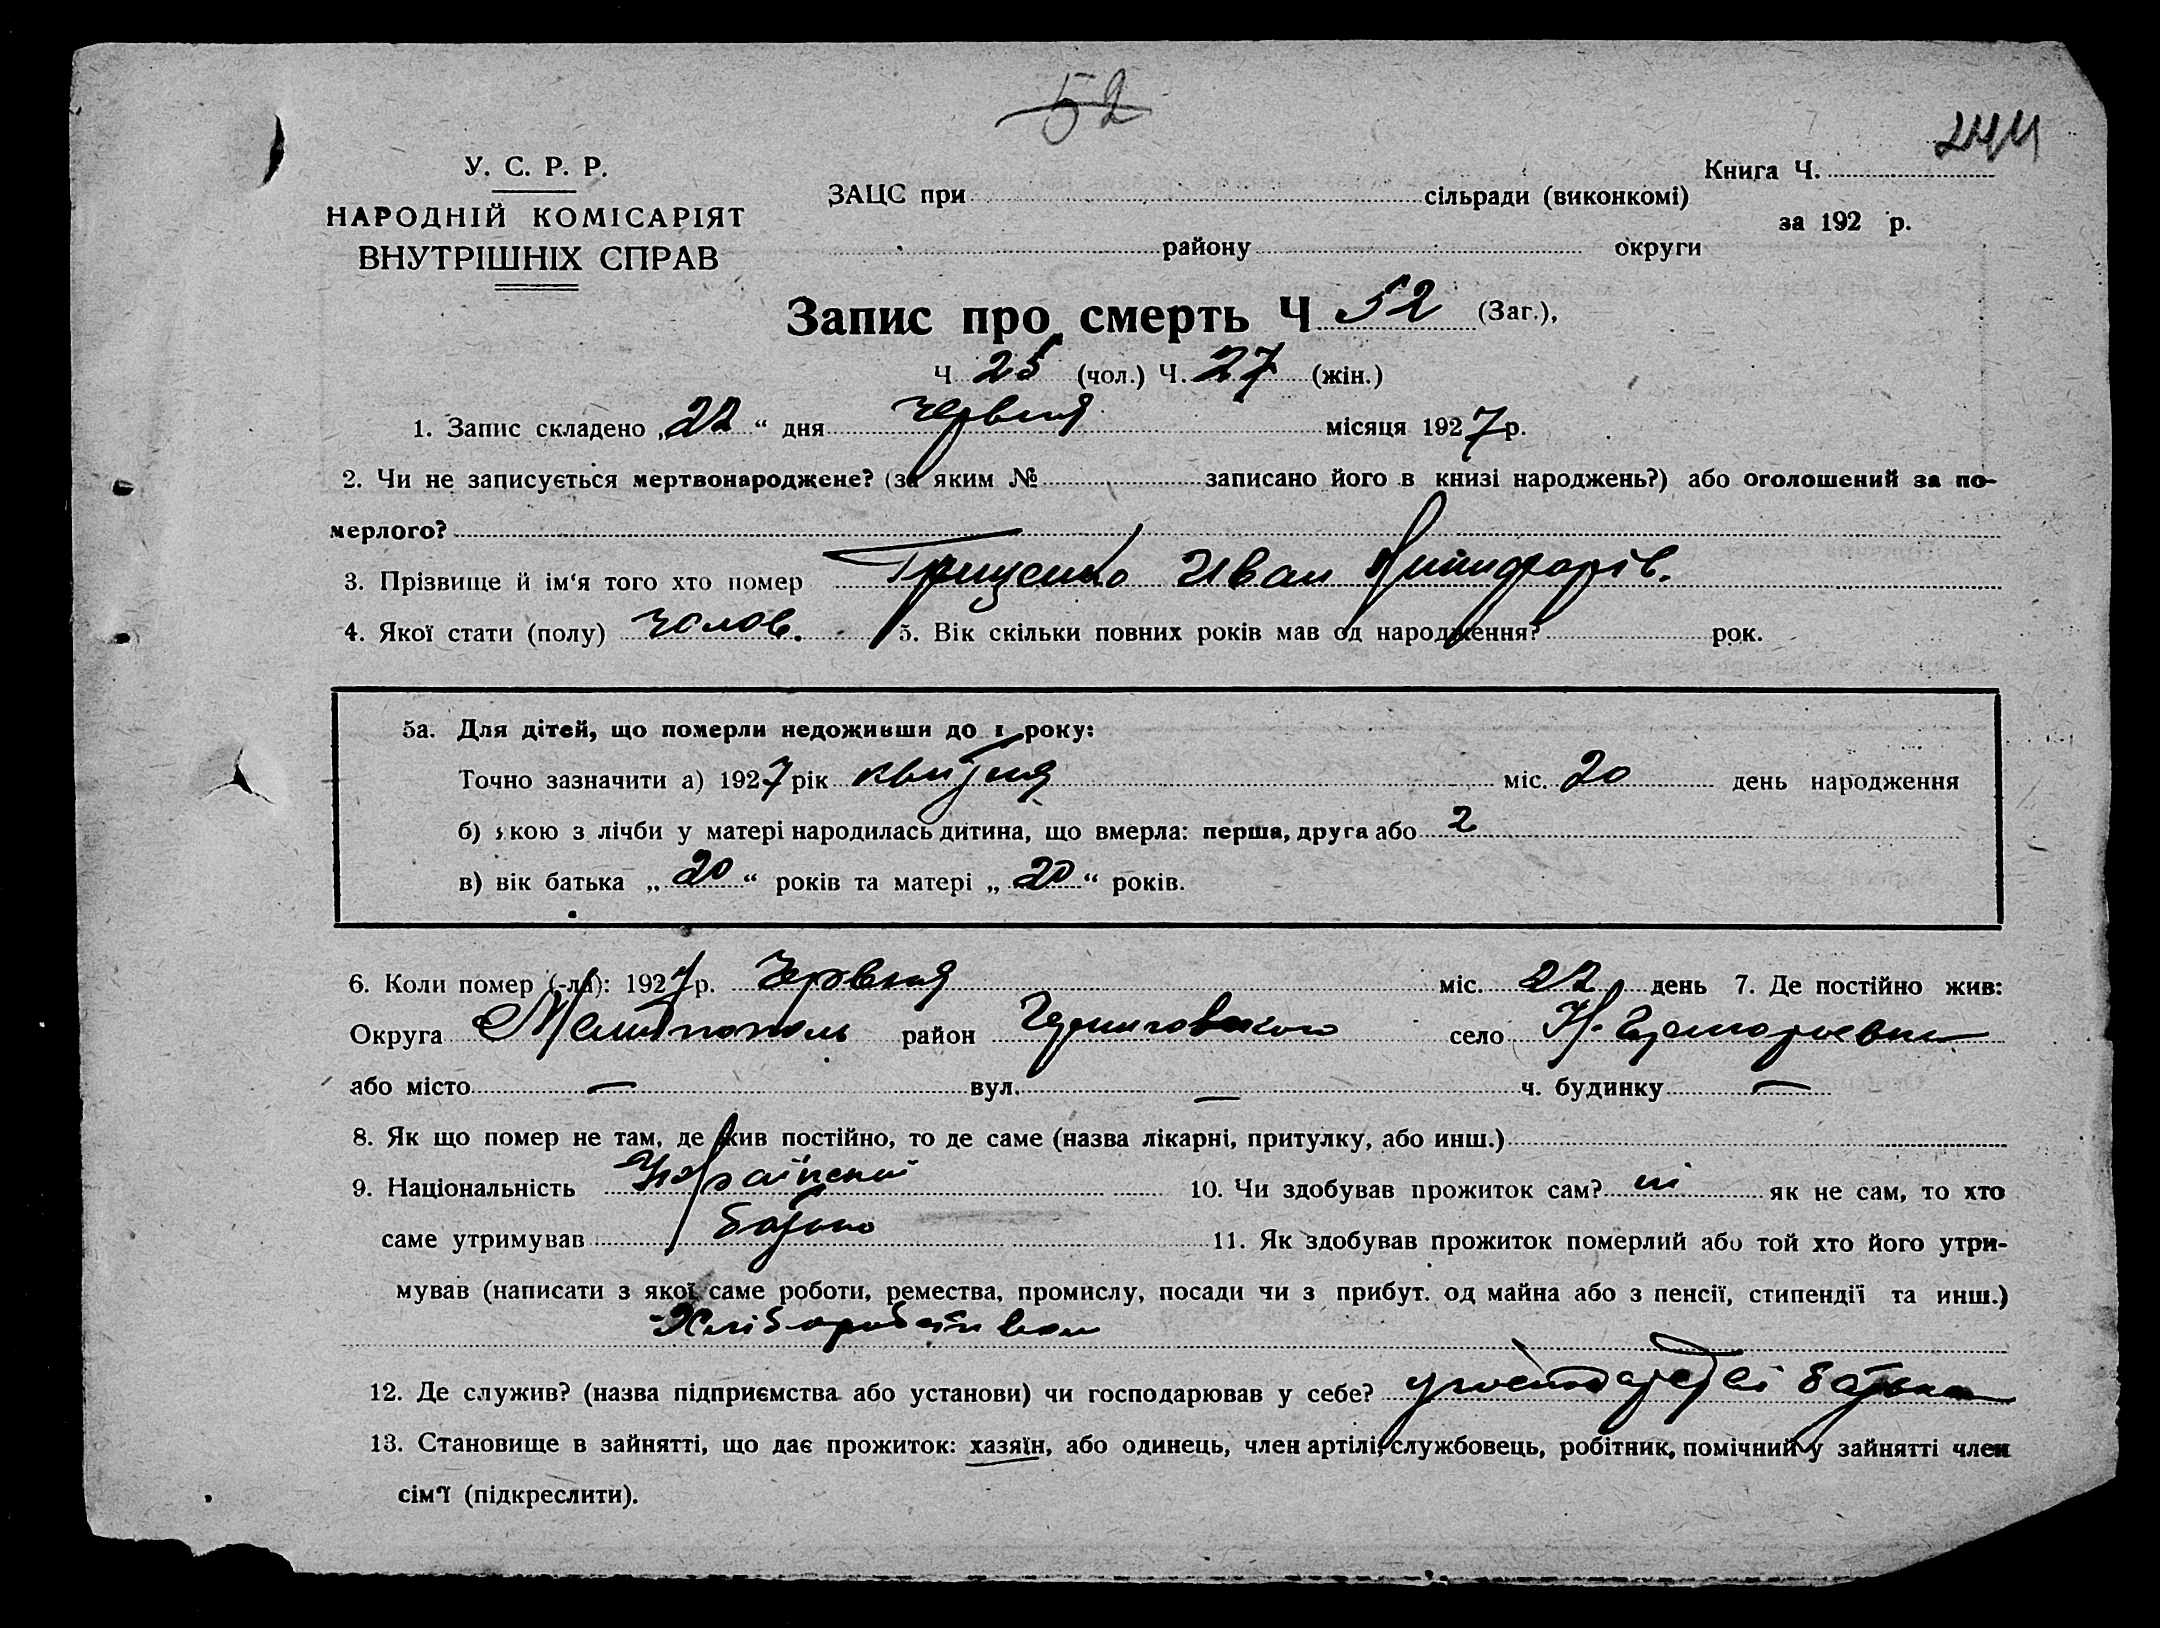 52
244
У. С. Р. Р.
НАРОДНІЙ КОМІСАРІЯТ
ВНУТРІШНІХ СПРАВ
ЗАЦС при сільради (виконкомі)
району округи
Книга Ч.
за 192 р.
Запис про смерть Ч 52 (Заг.),
Ч 25 (чол.) Ч. 27 (жін.)
1. Запис складено „22“ дня червня місяця 1927 р.
2. Чи не записується мертвонароджене? (за яким № записано його в книзі народжень?) або оголошений за по-
мерлого?
3. Прізвище й ім‘я того хто помер Грищенко Иван Никифорів.
4. Якої стати (полу) чолов. 5. Вік скільки повних років мав од народження? рок.
5а. Для дітей, що померли недоживши до 1 року:
Точно зазначити а) 1927 рік квитня міс. 20 день народження
б) якою з лічби у матері народилась дитина, що вмерла: перша, друга або 2
в) вік батька „20“ років та матері „20“ років.
6. Коли помер (-ла): 1927 р. Червня міс. 22 день 7. Де постійно жив:
Округа Мелітополь район село
або місто — вул. — ч. будинку —
8. Як що помер не там, де жив постійно, то де саме (назва лікарні, притулку, або инш.)
9. Національність 10. Чи здобував прожиток сам? ні як не сам, то хто
саме утримував батько 11. Як здобував прожиток померлий або той хто його утри-
мував (написати з якої саме роботи, ремества, промислу, посади чи з прибут. од майна або з пенсії, стипендії та инш.)
12. Де служив? (назва підприємства або установи) чи господарював у себе? батька
13. Становище в зайнятті, що дає прожиток: хазяїн, або одинець, член артілі, службовець, робітник, помічний у зайнятті член
сім‘ї (підкреслити).